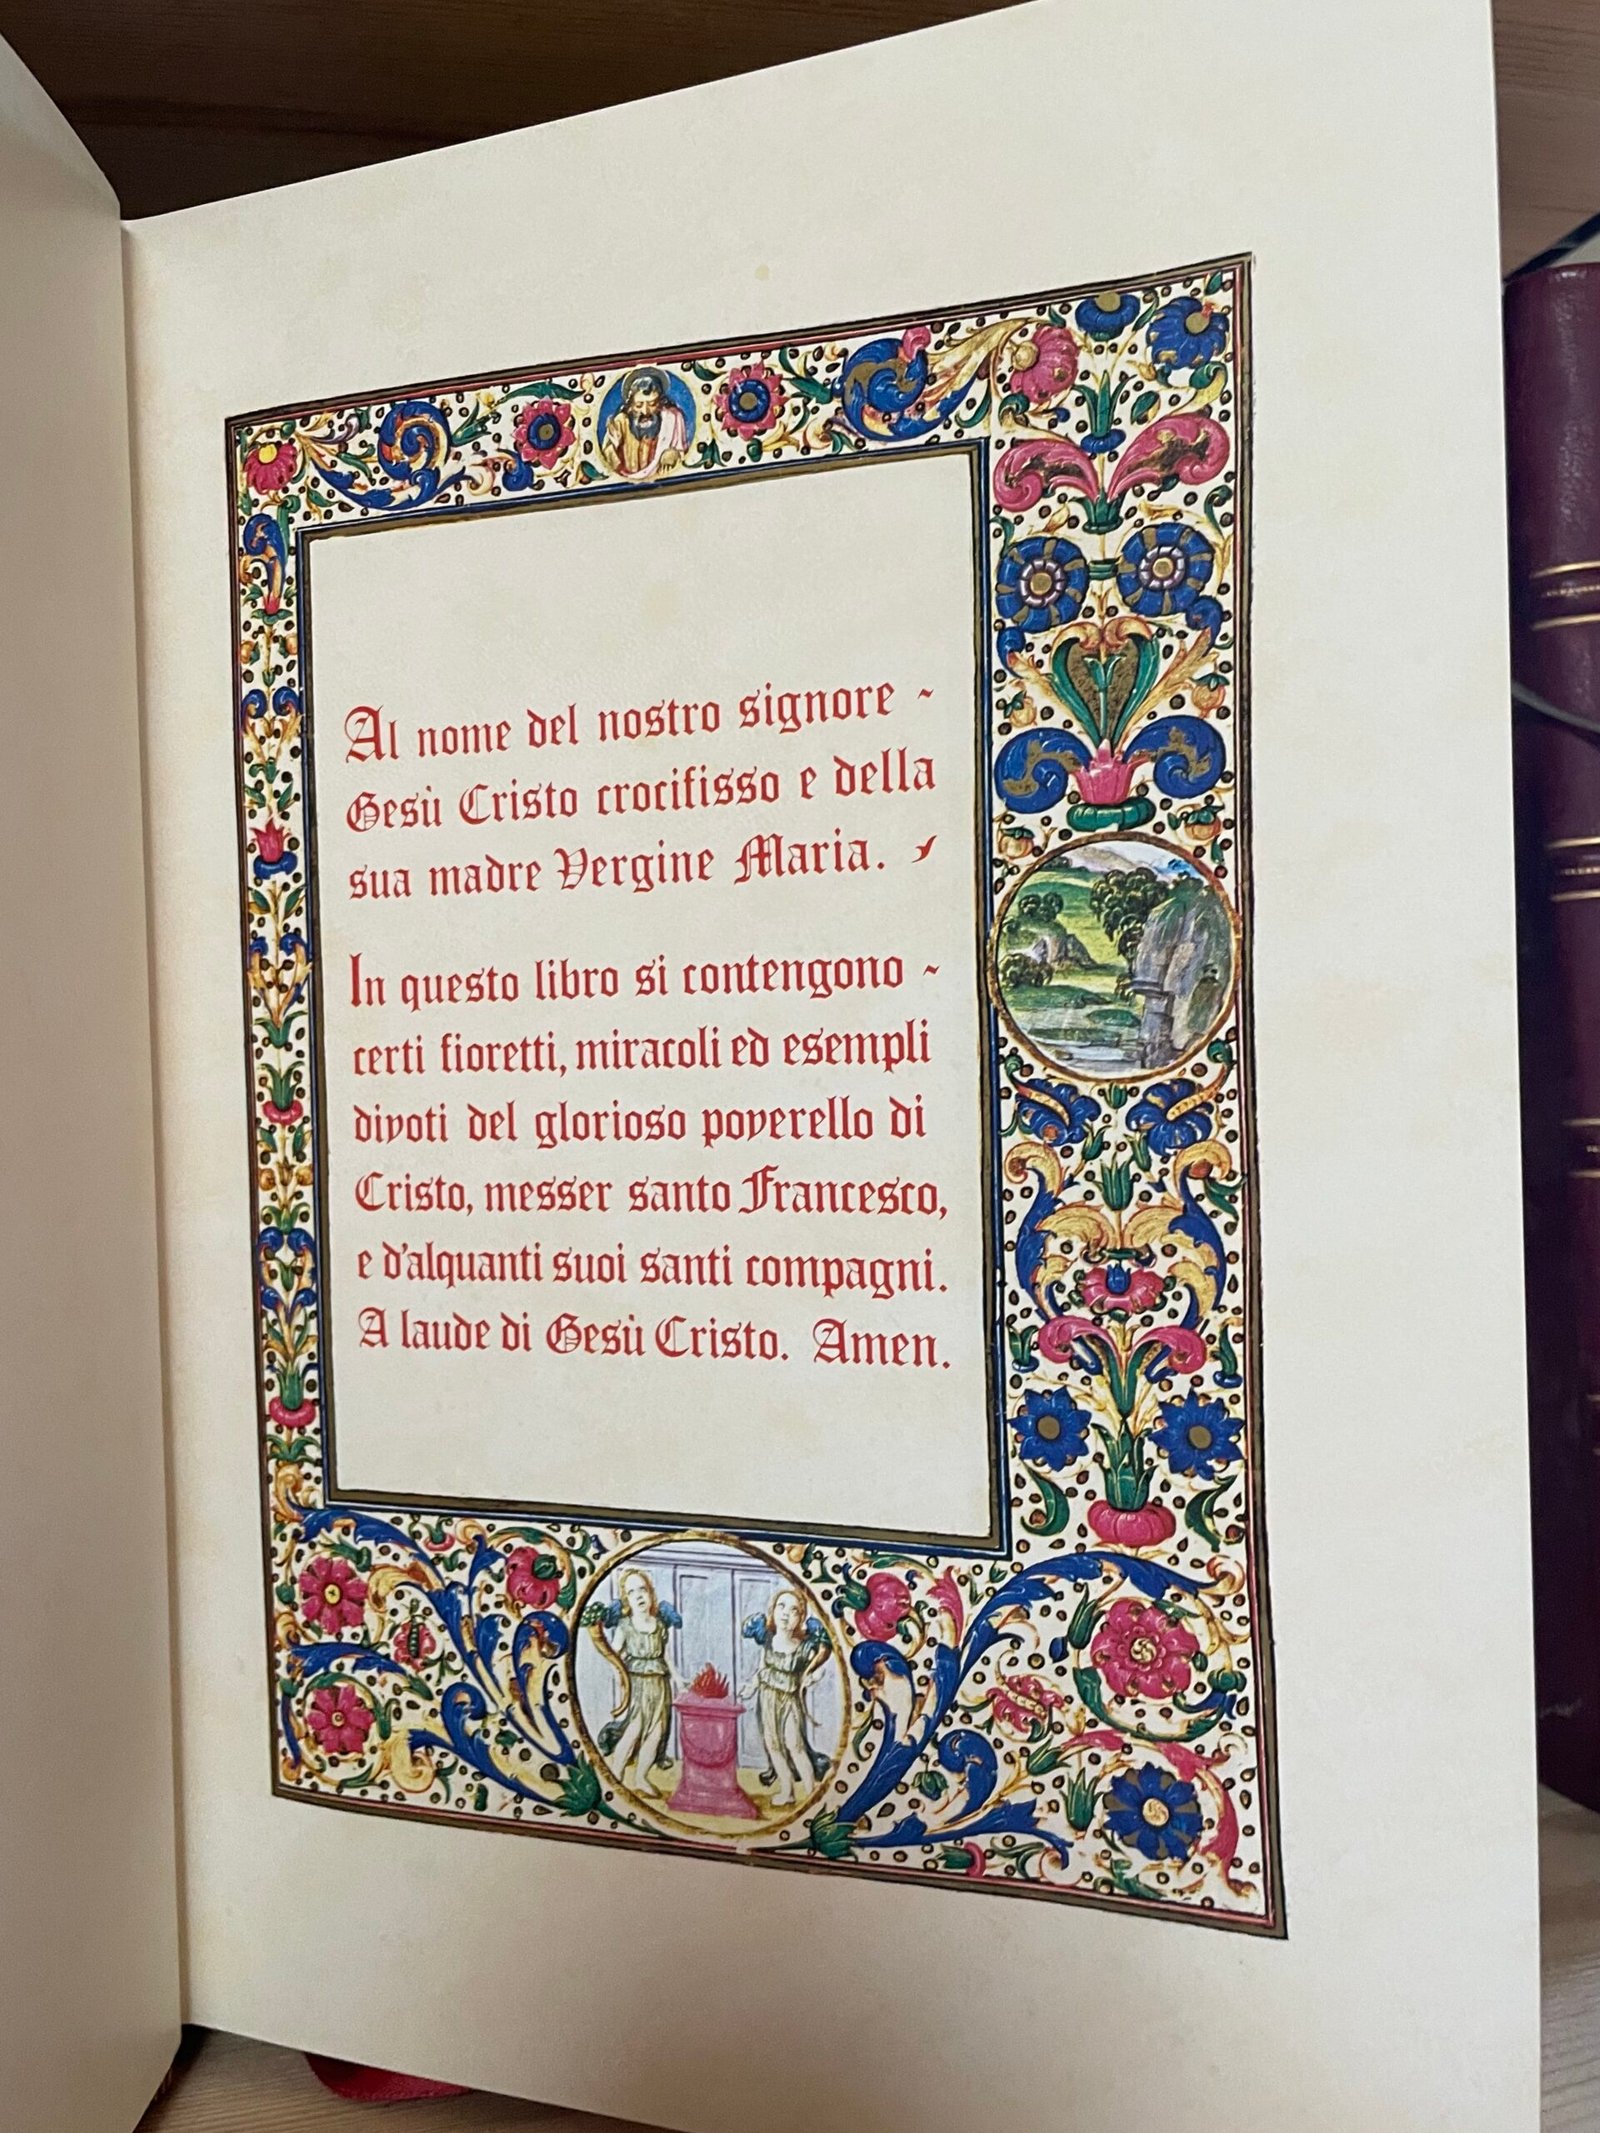 Al nome del nostro signore ~
Gesù Cristo crocifisso e della
sua madre Vergine Maria.
In questo libro si contengono ~
certi fioretti, miracoli ed esempli
divoti del glorioso poverello di
Cristo, messer santo Francesco,
e d'alquanti suoi santi compagni.
A laude di Gesù Cristo. Amen.